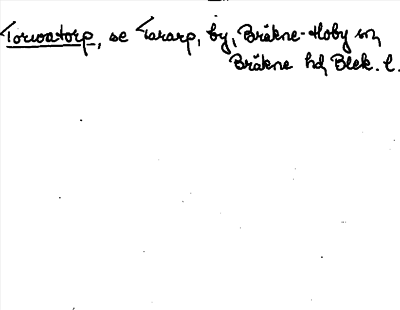 Torwatorp, se Tararp, by, Bräkne-Hoby sn,
Bräkne hd, Blek. l.